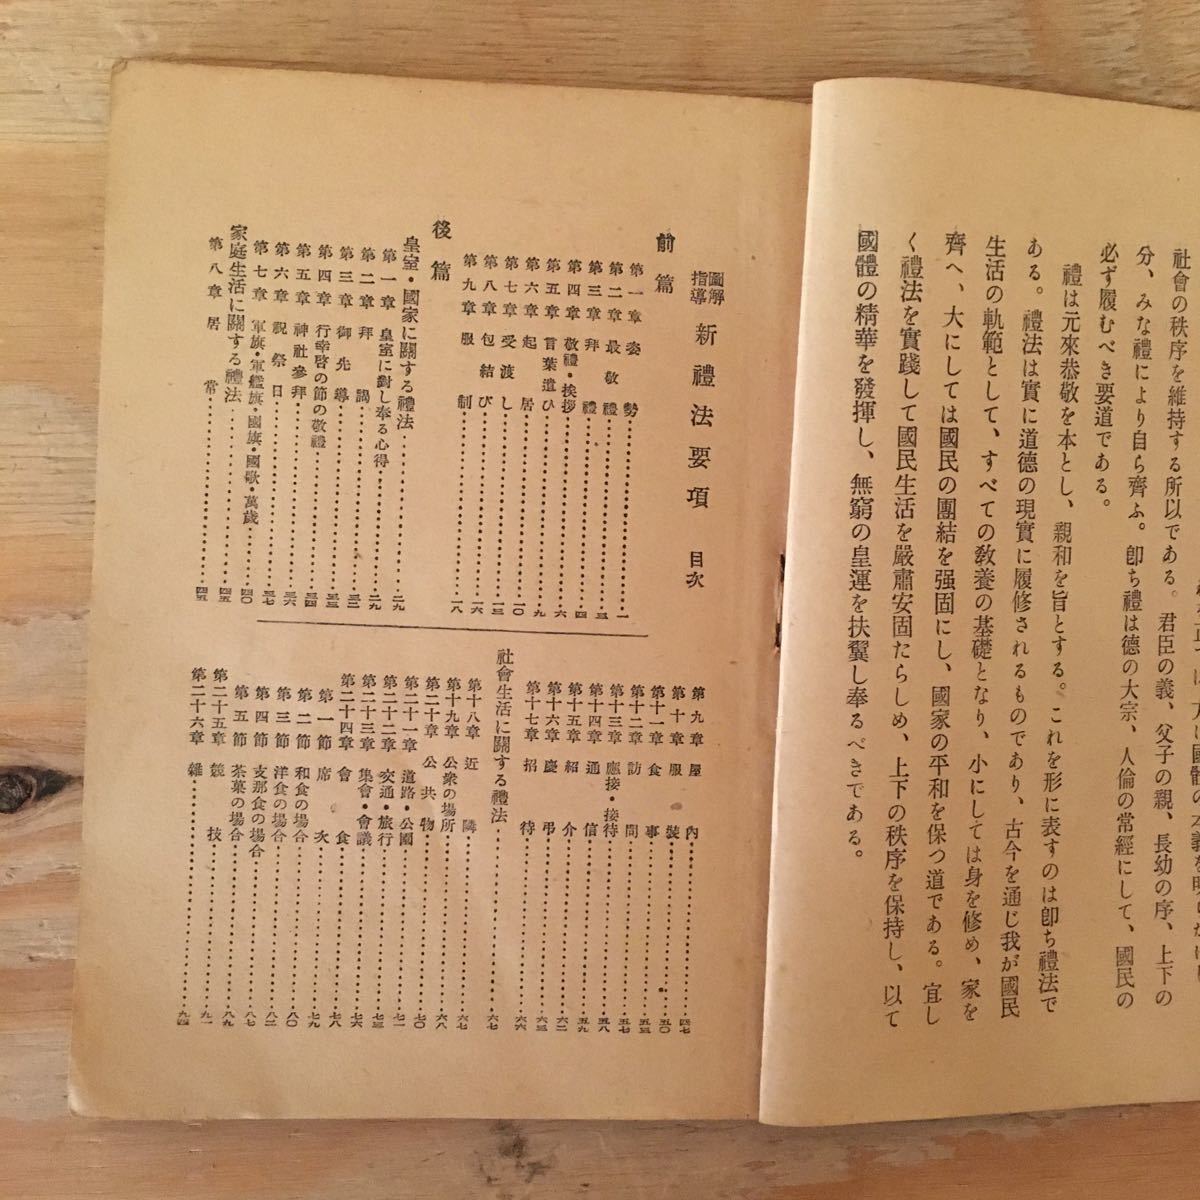 社會の秩序を維持する所以である。君臣の義、父子の親、長幼の序、上下の
分、みな禮により自ら齊ふ。卽ち禮は德の大宗、人倫の常經にして、國民の
必ず履むべき要道である。
禮は元來恭敬を本とし、親和を旨とする。これを形に表すのは卽ち禮法で
ある。禮法は實に道德の現實に履修されるものであり、古今を通じ我が國民
生活の軌範として、すべての敎養の基礎となり、小にしては身を修め、家を
齊へ、大にしては國民の團結を强固にし、國家の平和を保つ道である。宜し
く禮法を實踐して國民生活を嚴肅安固たらしめ、上下の秩序を保持し、以て
國體の精華を發揮し、無窮の皇運を扶翼し奉るべきである。
圖解指導 新禮法要項 目次
前篇
第一章 姿勢……一
第二章 最敬禮……三
第三章 拜禮……四
第四章 敬禮・挨拶……六
第五章 言葉遣ひ……九
第六章 起居……一〇
第七章 受渡し……一三
第八章 包結び……一六
第九章 服制……一八
後篇
皇室・國家に關する禮法……二九
第一章 皇室に對し奉る心得……二九
第二章 拜謁……三二
第三章 御先導……三三
第四章 行幸啓の節の敬禮……三四
第五章 神社參拜……三六
第六章 祝祭日……三七
第七章 軍旗・軍艦旗・國旗・國歌・萬歲……四〇
家庭生活に關する禮法……四五
第八章 居常……四五
第九章 屋內……四七
第十章 服裝……五〇
第十一章 食事……五三
第十二章 訪問……五七
第十三章 應接・接待……五八
第十四章 通信……五九
第十五章 紹介……六二
第十六章 慶弔……六三
第十七章 招待……六六
社會生活に關する禮法……六七
第十八章 近隣……六七
第十九章 公衆の場所……六八
第二十章 公共物……七〇
第二十一章 道路・公園……七一
第二十二章 交通・旅行……七三
第二十三章 集會・會議……七六
第二十四章 會食……七八
第一節 席次……七九
第二節 和食の場合……八〇
第三節 洋食の場合……八二
第四節 支那食の場合……八七
第五節 茶菓の場合……八九
第二十五章 競技……九一
第二十六章 雜……九四